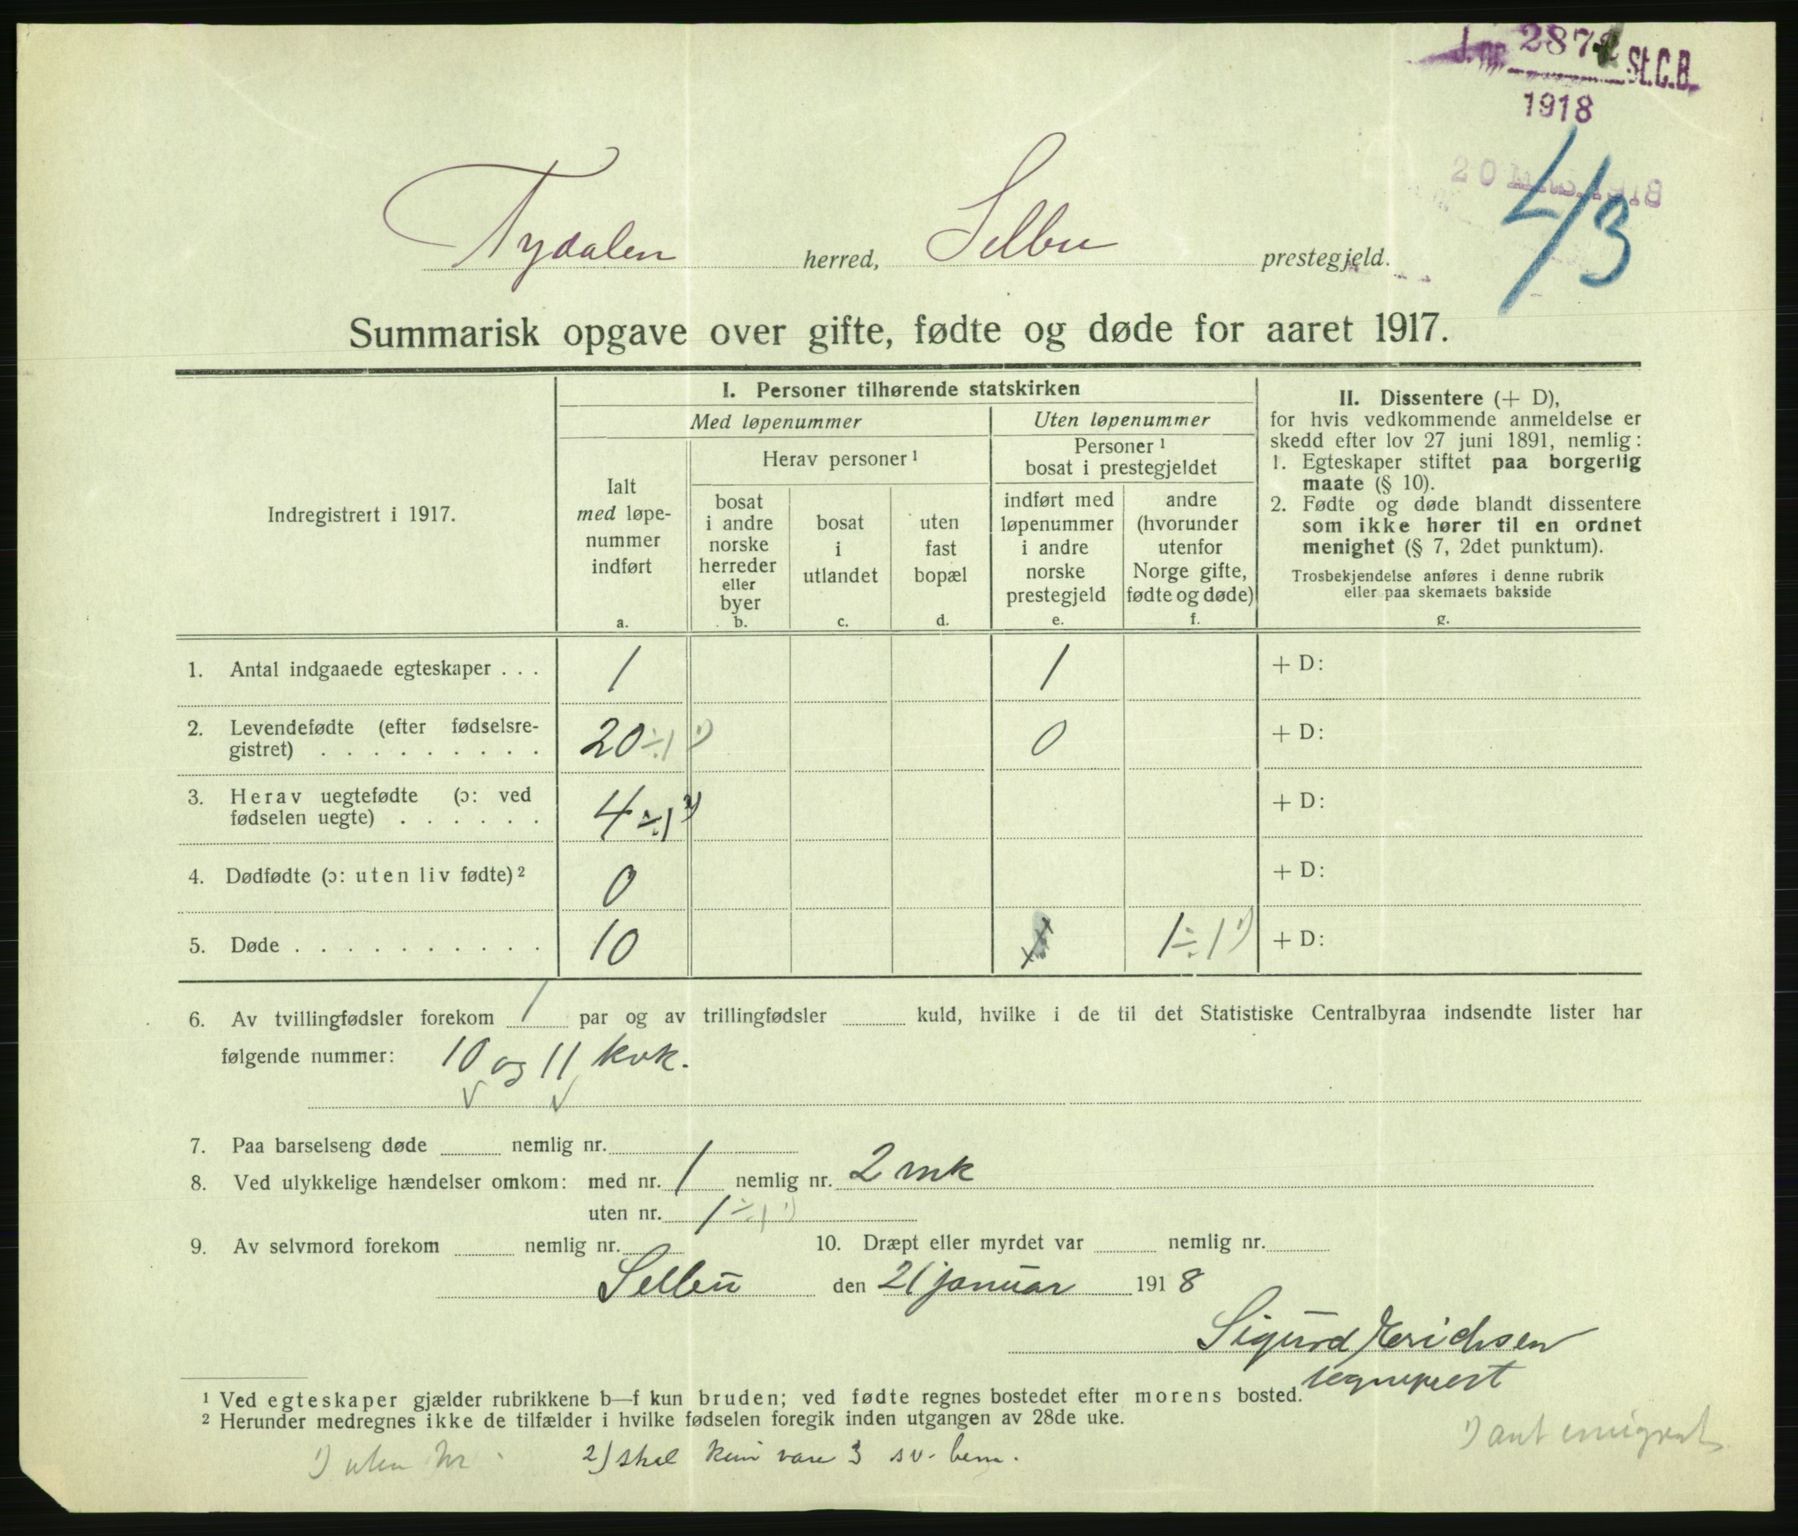 J. nr. 287 St.C.B.
1918
20 1918
43
Tydalen herred, Selbu prestegjeld.
Summarisk opgave over gifte, fødte og døde for aaret 1917.
Indregistrert i 1917.
I. Personer tilhørende statskirken
Med løpenummer
Uten løpenummer
Ialt
med løpe-
nummer
indført
a.
Herav personer ¹
bosat
i andre
norske
herreder
eller
byer
b.
bosat
i
utlandet
c.
uten
fast
bopæl
d.
Personer ¹
bosat i prestegjeldet
indført med
løpenummer
i andre
norske
prestegjeld
e.
andre
(hvorunder
utenfor
Norge gifte,
fødte og døde)
f.
II. Dissentere (+ D),
for hvis vedkommende anmeldelse er
skedd efter lov 27 juni 1891, nemlig:
1. Egteskaper stiftet paa borgerlig
maate (§ 10).
2. Fødte og døde blandt dissentere
som ikke hører til en ordnet
menighet (§ 7, 2det punktum).
Trosbekjendelse anføres i denne rubrik
eller paa skemaets bakside
g.
1. Antal indgaaede egteskaper . . . 1 1 + D:
2. Levendefødte (efter fødselsre-
gistret) . . . . . . . . . 20 ÷1 ¹) 0 + D:
3. Herav uegtefødte (ɔ: ved
fødselen uegte) . . . . . . 4 ÷1 ²) + D:
4. Dødfødte (ɔ: uten liv fødte) ² 0 + D:
5. Døde . . . . . . . . . . 10 1÷1 ¹) + D:
6. Av tvillingfødsler forekom 1 par og av trillingfødsler kuld, hvilke i de til det Statistiske Centralbyraa indsendte lister har
følgende nummer: 10 og 11 kvk.
7. Paa barselseng døde nemlig nr.
8. Ved ulykkelige hændelser omkom: med nr. 1 nemlig nr. 2 mk
uten nr. 1 ÷1 ¹)
9. Av selvmord forekom nemlig nr. 10. Dræpt eller myrdet var nemlig nr.
Selbu den 21 januar 1918
Sigurd Erichsen
sogneprest
¹ Ved egteskaper gjælder rubrikkene b—f kun bruden; ved fødte regnes bostedet efter morens bosted.
² Herunder medregnes ikke de tilfælder i hvilke fødselen foregik inden utgangen av 28de uke.
¹) uten nr. 2) skal kun være 3 sv. bem.
¹) ant emigrant